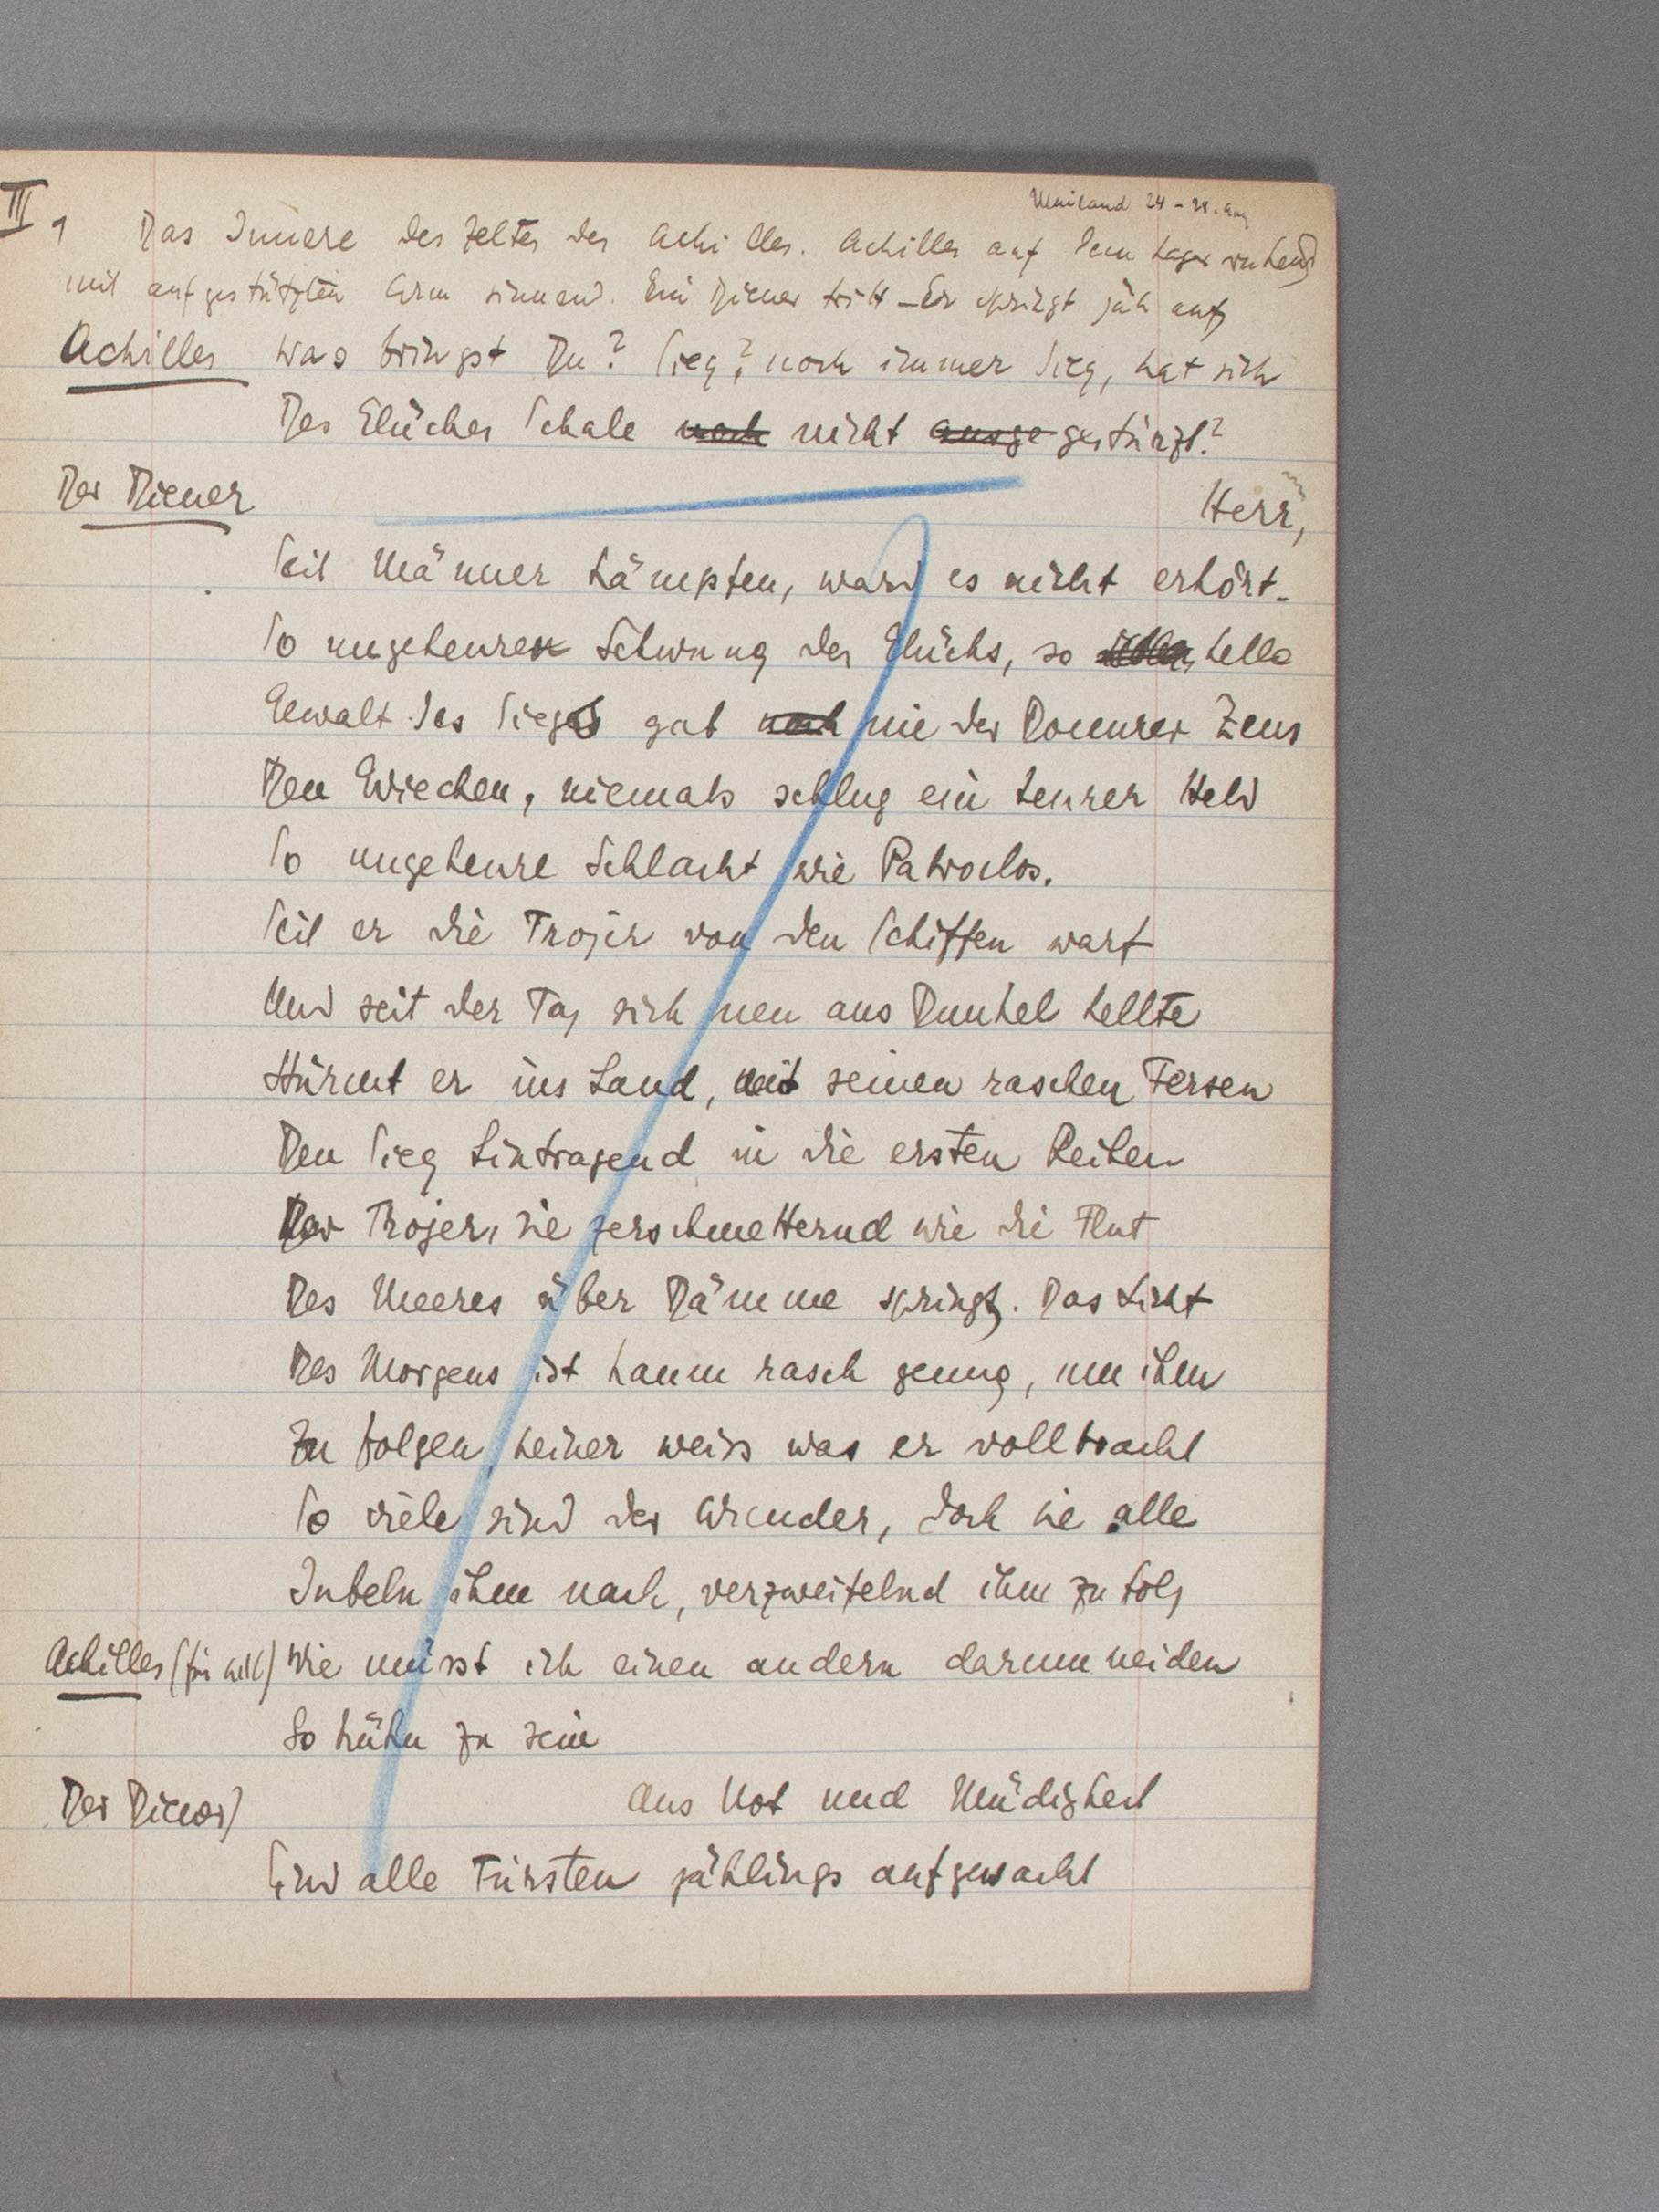 Mailand 24 – 28. Aug
III 1 Das Innere des Zeltes des Achilles. Achilles auf dem Lager ruhend,
mit aufgestützten Arm sinnend. Ein Diener tritt – Er springt jäh auf
Achilles Was bringst Du? Sieg? noch immer Sieg, hat sich
Des Glückes Schale noch nicht ausge gestürzt?
Der Diener Herr,
Seit Männer kämpften, ward es nicht erhört.
So ungeheuren Schwung des Glücks, so helle
Gewalt des Siegs gab noch nie der Donnrer Zeus
Den Griechen, niemals schlug ein teurer Held
So ungeheure Schlacht wie Patroclos.
Seit er die Trojer von den Schiffen warf
Und seit der Tag sich neu aus Dunkel hellte
Stürmt er ins Land, mit seinen raschen Fersen
Den Sieg hintragend in die ersten Reihen
Der Trojer, sie zerschmetternd wie die Flut
Des Meeres über Dämme springt. Das Licht
Des Morgens ist kaum rasch genug, um ihm
Zu folgen, keiner weiss was er vollbracht
So viele sind der Wunder, doch sie alle
Jubeln ihm nach, verzweifelnd ihm zu folg
Achilles (für sich) Wie müsst ich einen andern darum neiden
So kühn zu sein
Der Diener) Aus Not und Müdigkeit
Sind alle Fürsten jählings aufgewacht